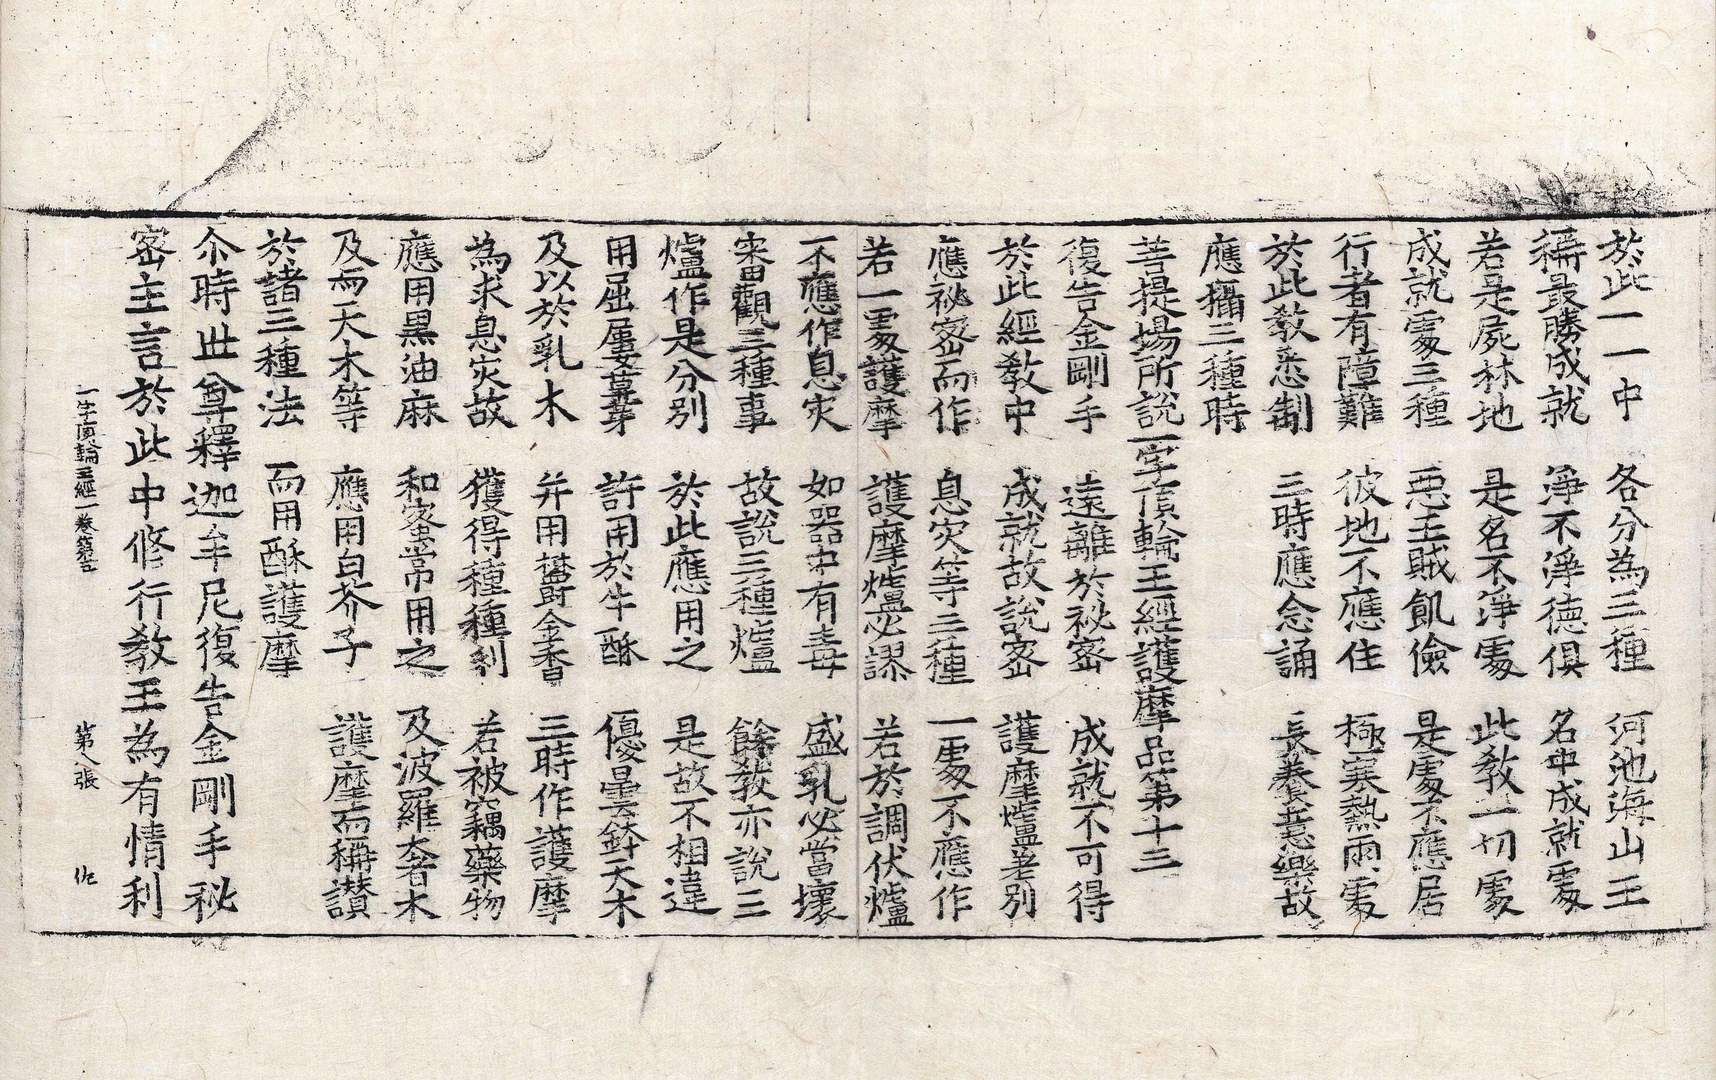 於此一一中　各分為三種　河池海山王
稱最勝成就　淨不淨德俱　名中成就處
若是屍林地　是名不淨處　此教一切處
成就處三種　惡王賊飢儉　是處不應居
行者有障難　彼地不應住　極寒熱雨處
於此教悉制　三時應念誦　長養意樂故
應攝三種時
菩提場所說一字頂輪王經護摩品第十三
復告金剛手　遠離於祕密　成就不可得
於此經教中　成就故說密　護摩爐差別
應祕密而作　息灾等三種　一處不應作
若一處護摩　護摩爐必謬　若於調伏爐
不應作息灾　如器中有毒　盛乳必當壞
審觀三種事　故說三種爐　餘教亦說三
爐作是分別　於此應用之　是故不相違
用屈屢葽芽　許用於牛酥　優曇鉢天木
及以於乳木　并用欝金香　三時作護摩
為求息灾故　獲得種種利　若被竊藥物
應用黑油麻　和蜜常用之　及波羅奢木
及而天木等　應用白芥子　護摩而稱讃
於諸三種法　而用酥護摩
尒時世尊釋迦牟尼復告金剛手秘
密主言於此中修行教王為有情利
一字頂輪王經一卷第三　第八張　仇